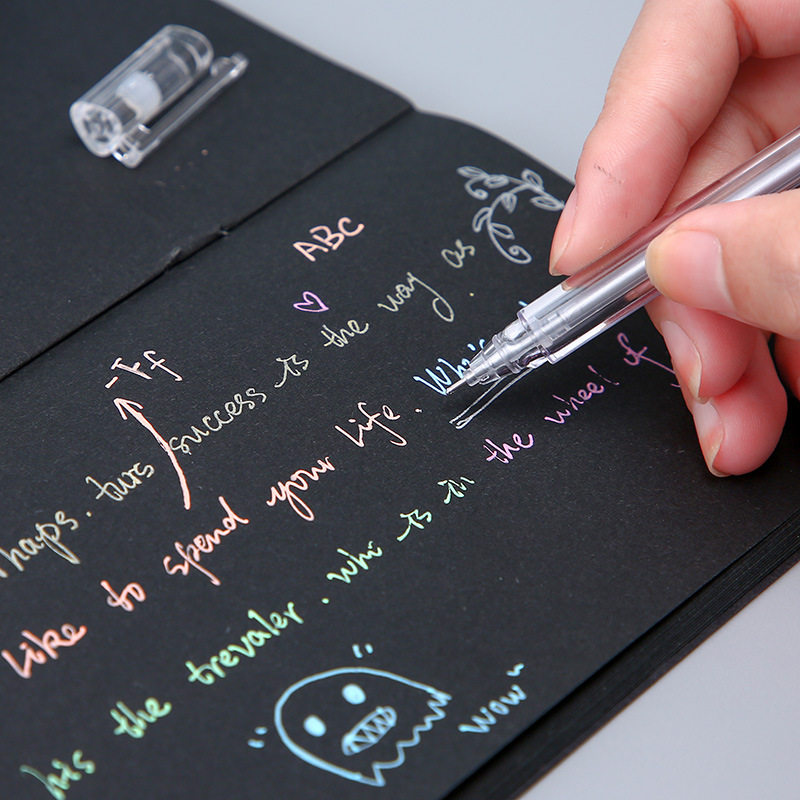 ABC
-Ff
success is the way as
Like to spend your life.
his the trevaler. who is in the wheel of
Wow"